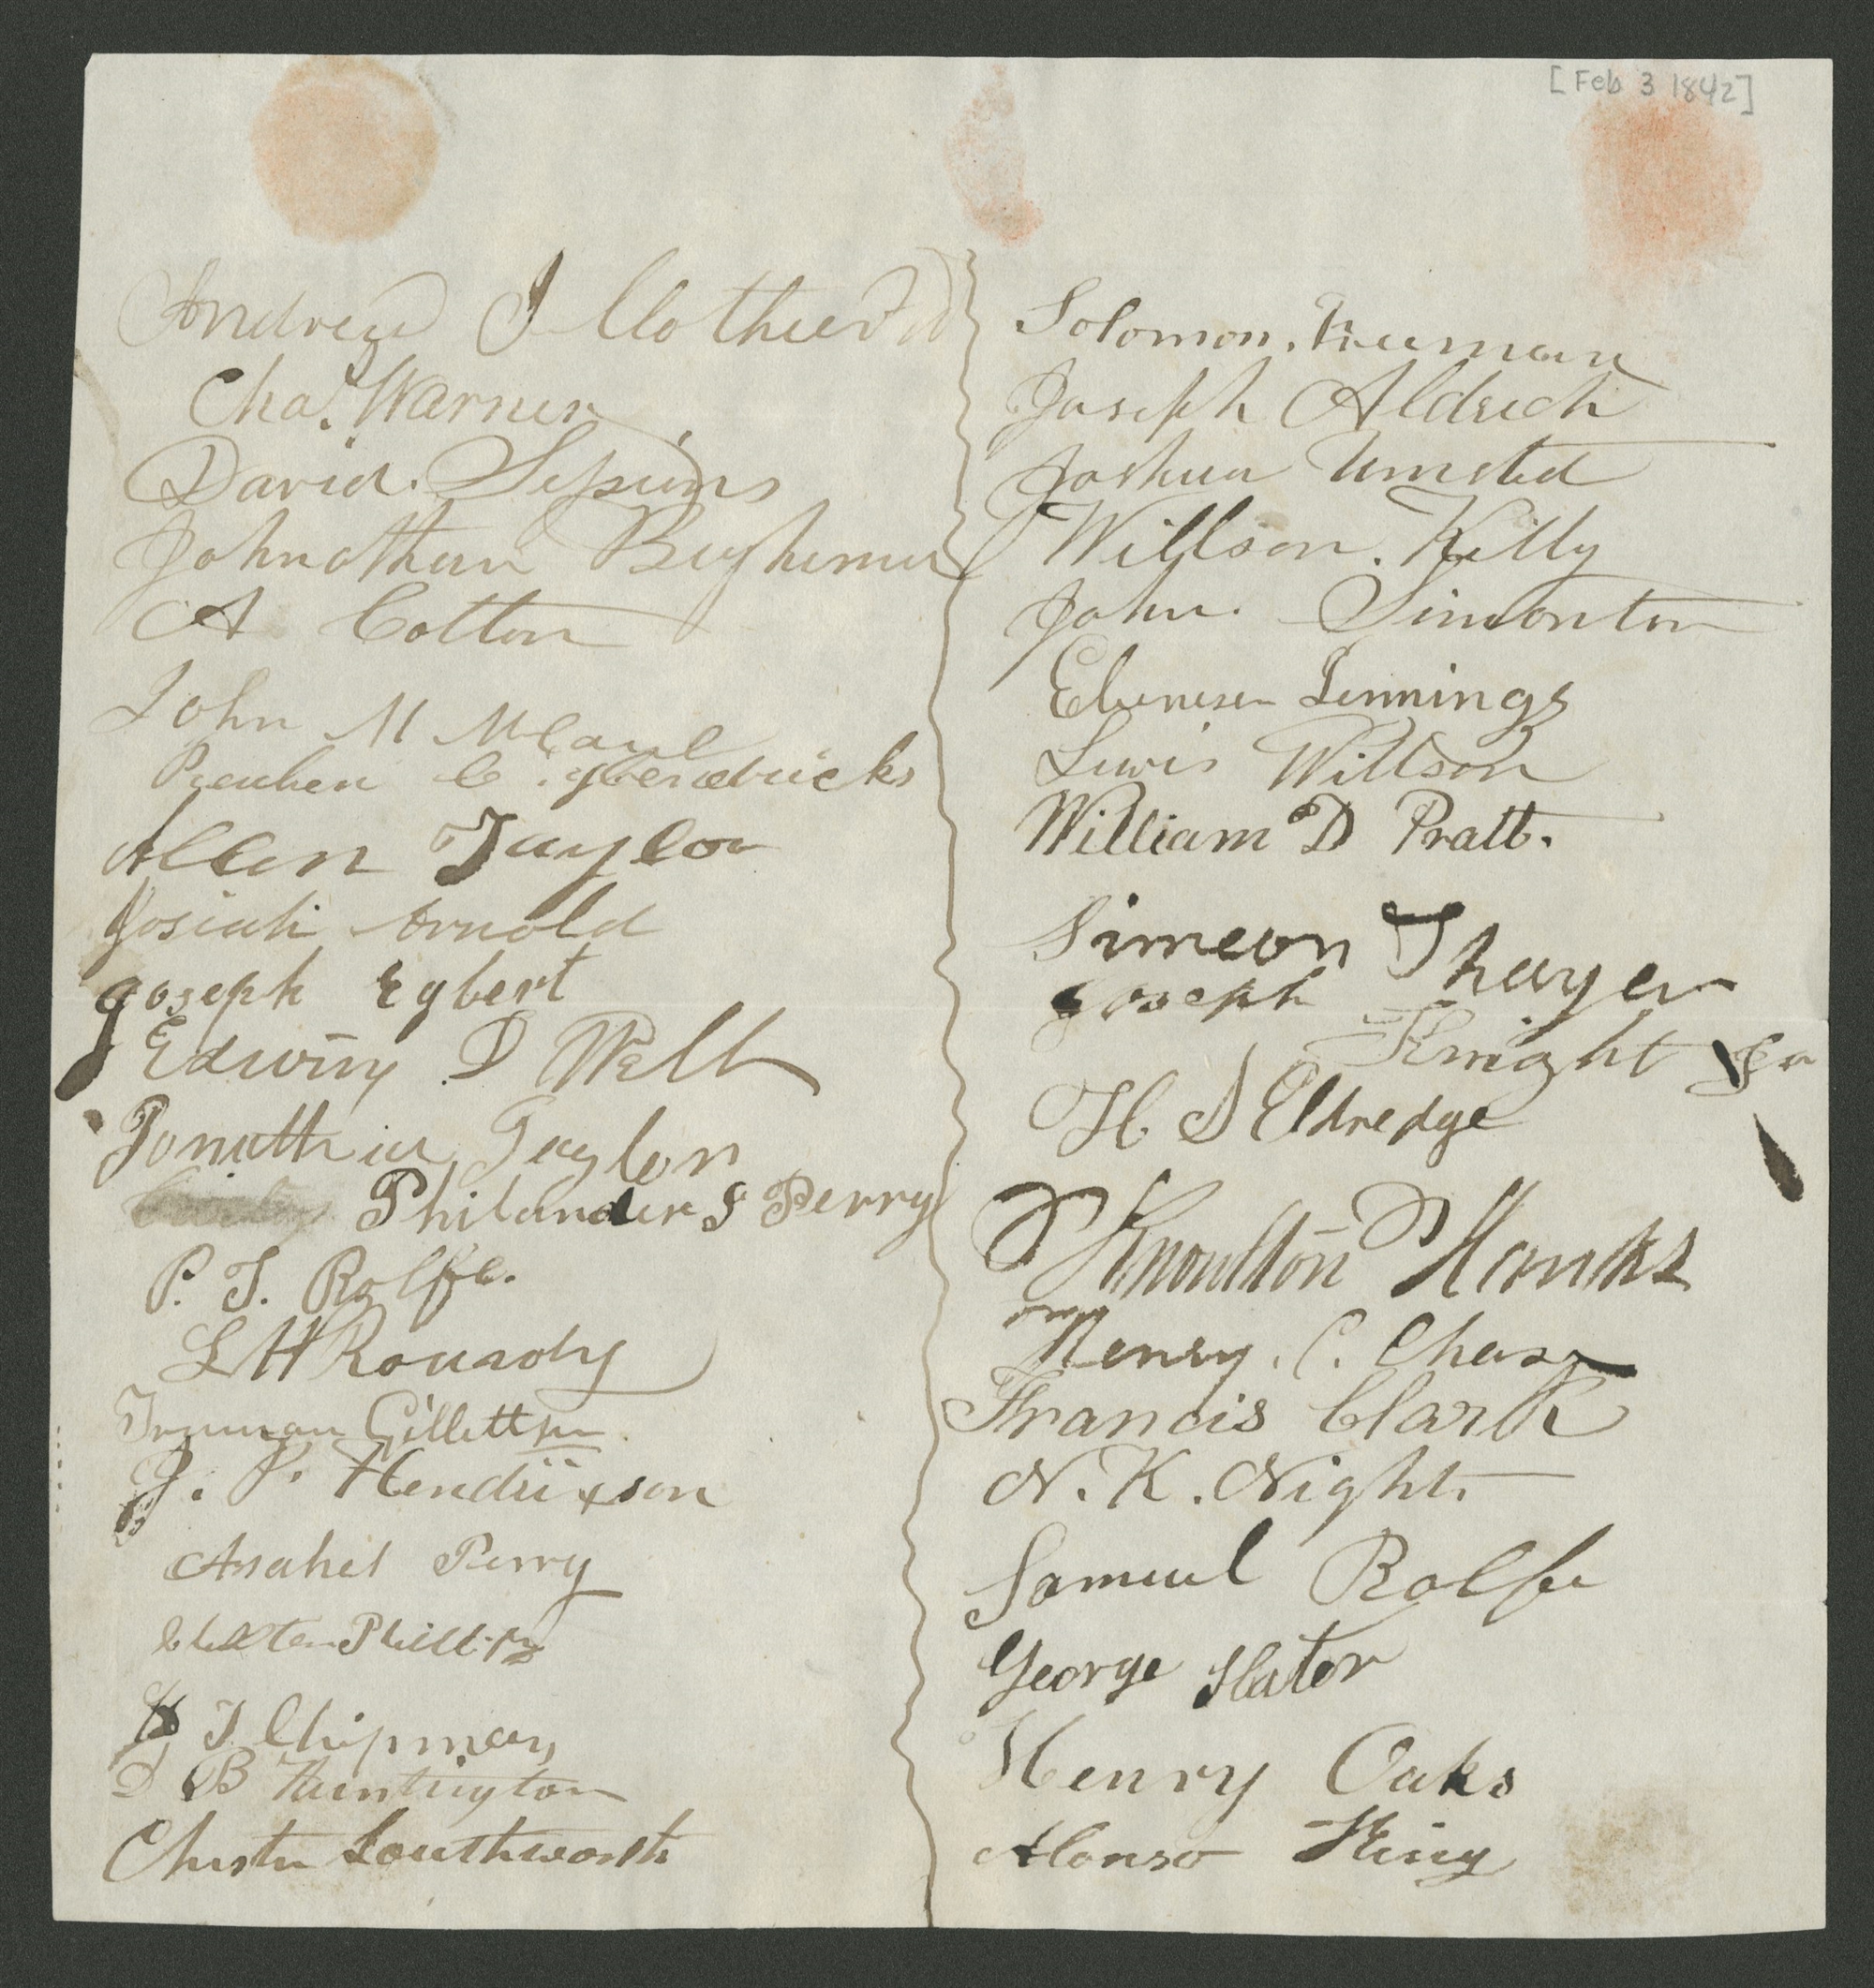 [Feb 3 1842]
Andrew J Clothier
Chas. Warner
David. Sessions
Johnathan
A Cotton
John M McCaul
Reuben C. Hendricks
Allen Taylor
Josiah Arnold
Joseph Egbert
Edwin D Webb
Jonathan Taylor
Philander S Perry
P. T. Rolfe.
L H Roundy
Truman Gillett Jun
J. P. Hendrixson
Asahel Perry
Phillips
T. Chipman
D B Huntington
Chester Southworth
Solomon. Truman
Joseph Aldrich
Joshua Umsted
Willson. Kelly
John. Simonton
Ebeneser Jennings
Lewis Willson
William D Pratt.
Simeon Thayer
Joseph Knight Jr
H. S Eldredge
Knoulton Hanks
Henry. C. Chase
Francis Clark
N. K. Night.
Samuel Rolfe
George Slater
Henry Oaks
Alonso King